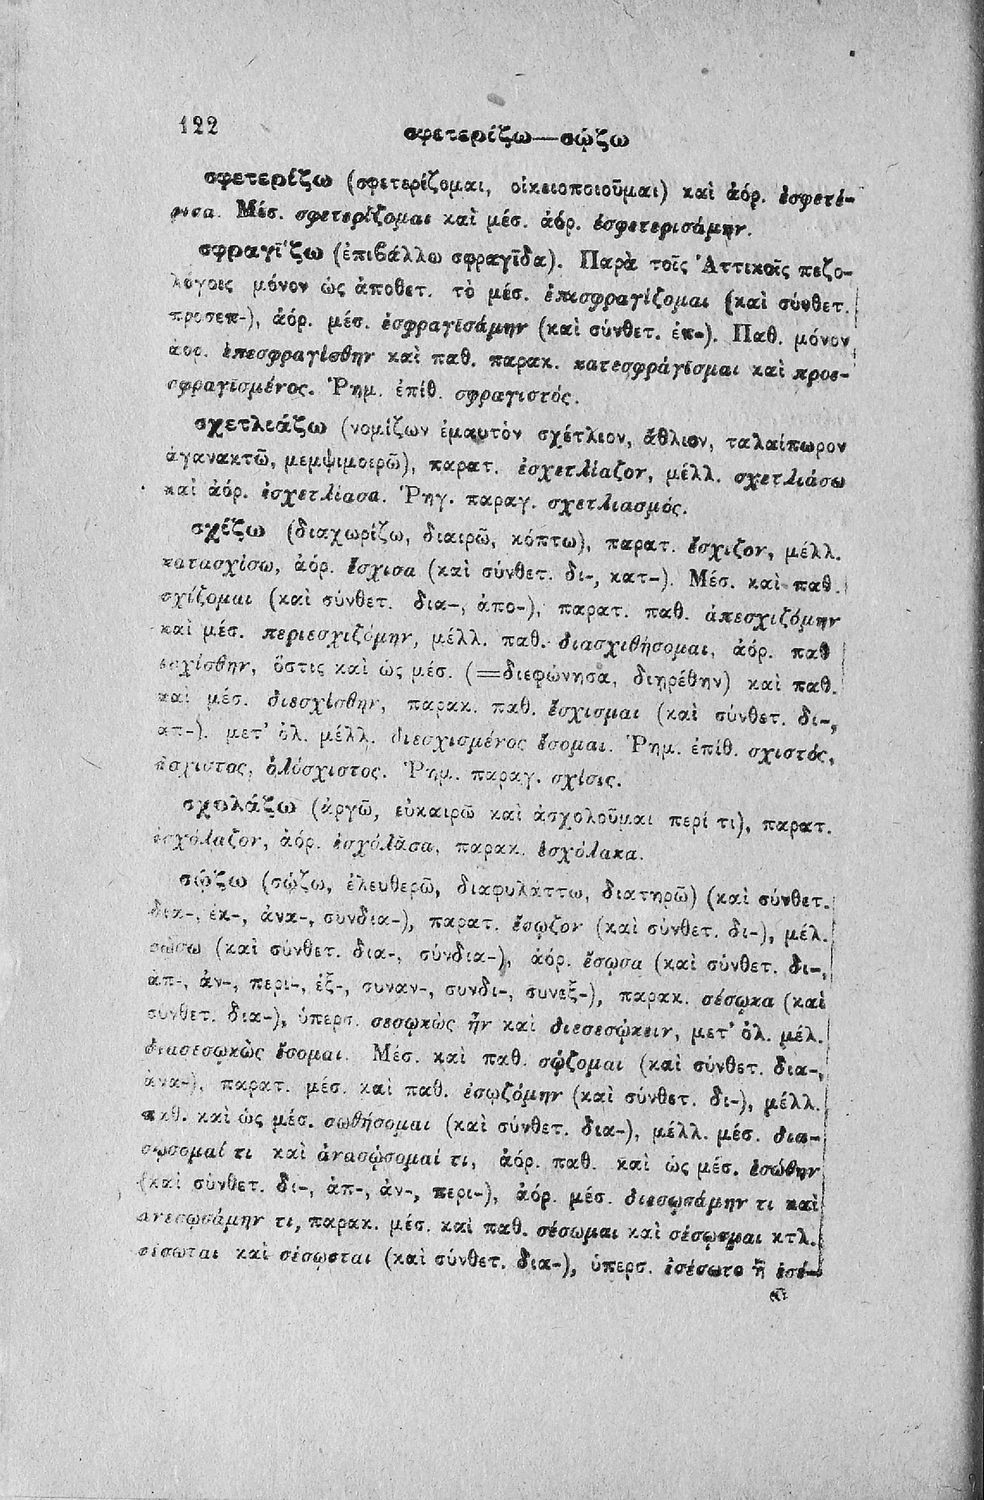 122
σφετερίζω—σῴζω
σφετερίζω (σφετερίζομαι, οἰκειοποιοῦμαι) καὶ ἀόρ. ἐσφετέ-
ρισα. Μέσ. σφετερίζομαι καὶ μέσ. ἀόρ. ἐσφετερισάμην.
σφραγίζω (ἐπιβάλλω σφραγῖδα). Παρὰ τοῖς Ἀττικοῖς πεζο-
λόγοις μόνον ὡς ἀποθετ. τὸ μέσ. ἐπισφραγίζομαι (καὶ σύνθετ.
προσεπ-), ἀόρ. μέσ. ἐσφραγισάμην (καὶ σύνθετ. ἐπ-). Παθ. μόνον
ἀόρ. ἐπεσφραγίσθην καὶ παθ. παρακ. κατεσφράγισμαι καὶ προε-
σφραγισμένος. Ῥημ. ἐπίθ. σφραγιστός.
σχετλιάζω (νομίζων ἐμαυτὸν σχέτλιον, ἄθλιον, ταλαίπωρον
ἀγανακτῶ, μεμψιμοιρῶ), παρατ. ἐσχετλίαζον, μέλλ. σχετλιάσω
καὶ ἀόρ. ἐσχετλίασα. Ῥηγ. παραγ. σχετλιασμός.
σχίζω (διαχωρίζω, διαιρῶ, κόπτω), παρατ. ἔσχιζον, μέλλ.
κατασχίσω, ἀόρ. ἔσχισα (καὶ σύνθετ. δι-, κατ-). Μέσ. καὶ παθ.
σχίζομαι (καὶ σύνθετ. δια-, ἀπο-), παρατ. παθ. ἀπεσχιζόμην
καὶ μέσ. περιεσχιζόμην, μέλλ. παθ. διασχιθήσομαι, ἀόρ. παθ
ἐσχίσθην, ὅστις καὶ ὡς μέσ. (=διεφώνησα, διῃρέθην) καὶ παθ.
καὶ μέσ. διεσχίσθην, παρακ. παθ. ἔσχισμαι (καὶ σύνθετ. δι-,
ἀπ-). μετ' ὁλ. μέλλ. διεσχισμένος ἔσομαι. Ῥημ. ἐπίθ. σχιστός,
ἄσχιστος, ὁλόσχιστος. Ῥημ. παραγ. σχίσις.
σχολάζω (ἀργῶ, εὐκαιρῶ καὶ ἀσχολοῦμαι περί τι), παρατ.
ἐσχόλαζον, ἀόρ. ἐσχόλασα, παρακ. ἐσχόλακα.
σῴζω (σῴζω, ἐλευθερῶ, διαφυλάττω, διατηρῶ) (καὶ σύνθετ.
δια-, ἐκ-, ἀνα-, συνδια-), παρατ. ἔσῳζον (καὶ σύνθετ. δι-), μέλ.
σώσω (καὶ σύνθετ. δια-, σύνδια-), ἀόρ. ἔσῳσα (καὶ σύνθετ. δι-,
ἀπ-, ἀν-, περι-, ἐξ-, συναν-, συνδι-, συνεξ-), παρακ. σέσῳκα (καὶ
σύνθετ. δια-), ὑπερσ. σεσῳκὼς ἦν καὶ διεσεσῴκειν, μετ' ὁλ. μέλ.
διασεσῳκὼς ἔσομαι. Μέσ. καὶ παθ. σῴζομαι (καὶ σύνθετ. δια-,
ἀνα-), παρατ. μέσ. καὶ παθ. ἐσῳζόμην (καὶ σύνθετ. δι-), μέλλ.
παθ. καὶ ὡς μέσ. σωθήσομαι (καὶ σύνθετ. δια-), μέλλ. μέσ. δια-
σῴσομαί τι καὶ ἀνασῴσομαί τι, ἀόρ. παθ. καὶ ὡς μέσ. ἐσώθην
(καὶ σύνθετ. δι-, ἀπ-, ἀν-, περι-), ἀόρ. μέσ. διεσῳσάμην τι καὶ
ἀνεσῳσάμην τι, παρακ. μέσ. καὶ παθ. σέσωμαι καὶ σέσῳσμαι κτλ.
σέσωται καὶ σέσῳσται (καὶ σύνθετ. δια-), ὑπερσ. ἐσέσωτο ἢ ἐσέ-